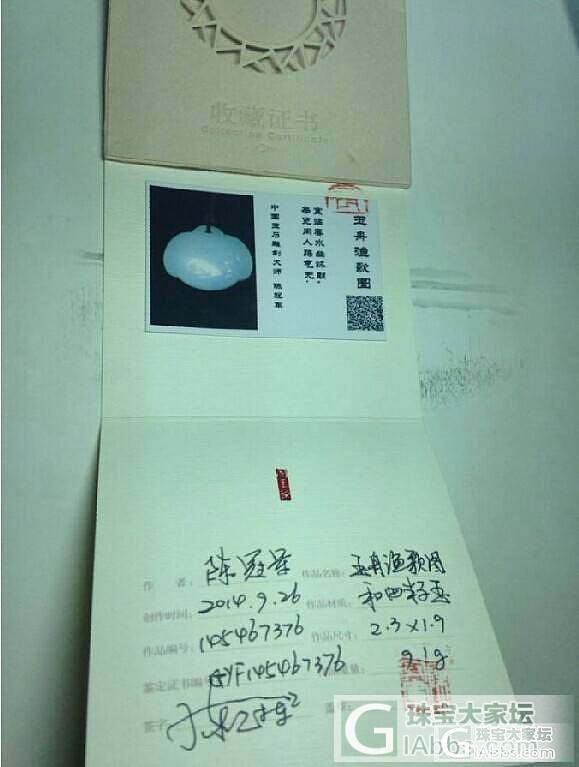 收藏证书
Collection Certificate
玉舟渔歌图
中国玉石雕刻大师 陈冠军
作 者：陈冠军
作品名称：玉舟渔歌图
创作时间：2014.9.26
作品材质：和田籽玉
作品编号：145467376
作品尺寸：2.3×1.9
鉴定证书编号：GYF145467376
重量：9.1g
签字：
盖章：
珠宝大家坛
GIAbbs.com